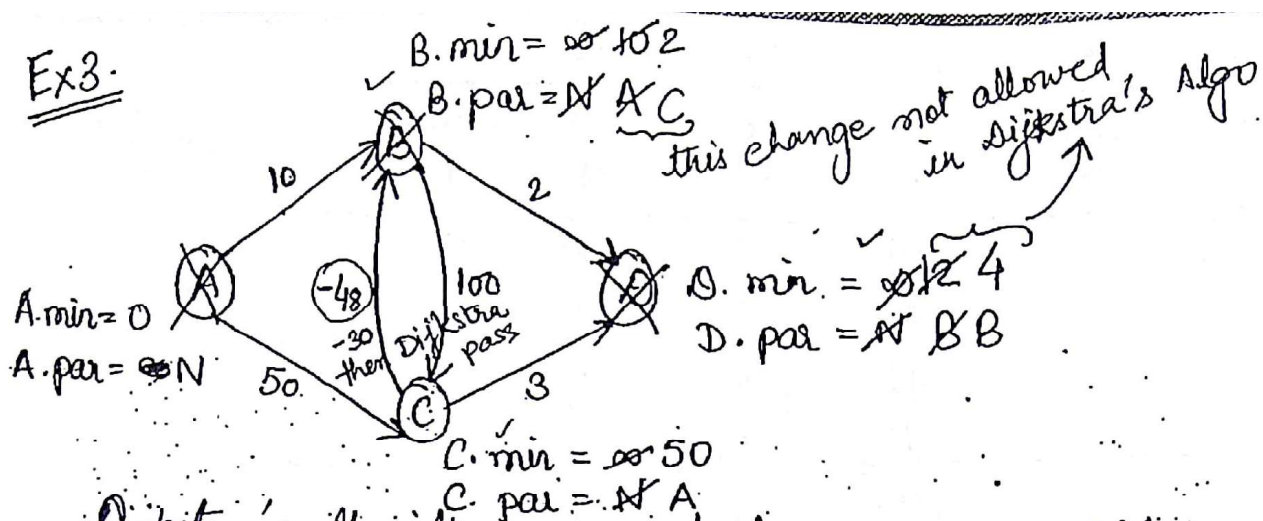 Ex3.
B.min = ∞ 10 2
B.par = N A C
this change not allowed
in Dijkstra's Algo
A
B
C
D
10
2
-48
100
-30
then Dijkstra
pass
50
3
A.min = 0
A.par = N
D. min. = ∞ 12 4
D. par = N B B
C. min = ∞ 50
C. par = N A